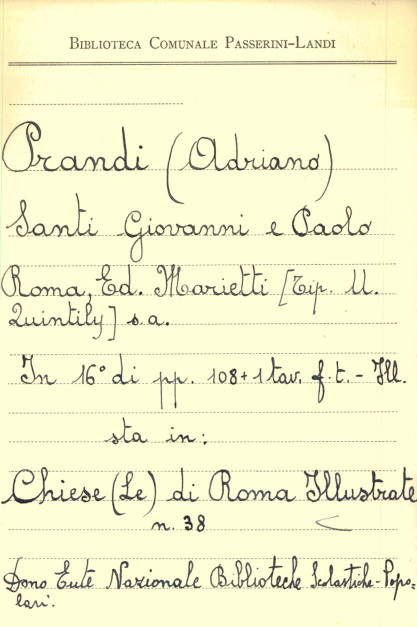 BIBLIOTECA COMUNALE PASSERINI-LANDI
Prandi (Adriano)
Santi Giovanni e Paolo
Roma, Ed. Marietti [Tip. U.
Quintily] s.a.
In 16° di pp. 108+1 tav. f.t. - Ill.
sta in:
Chiese (Le) di Roma Illustrate
n. 38
Dono Ente Nazionale Biblioteche Scolastiche-Popo=
lari.